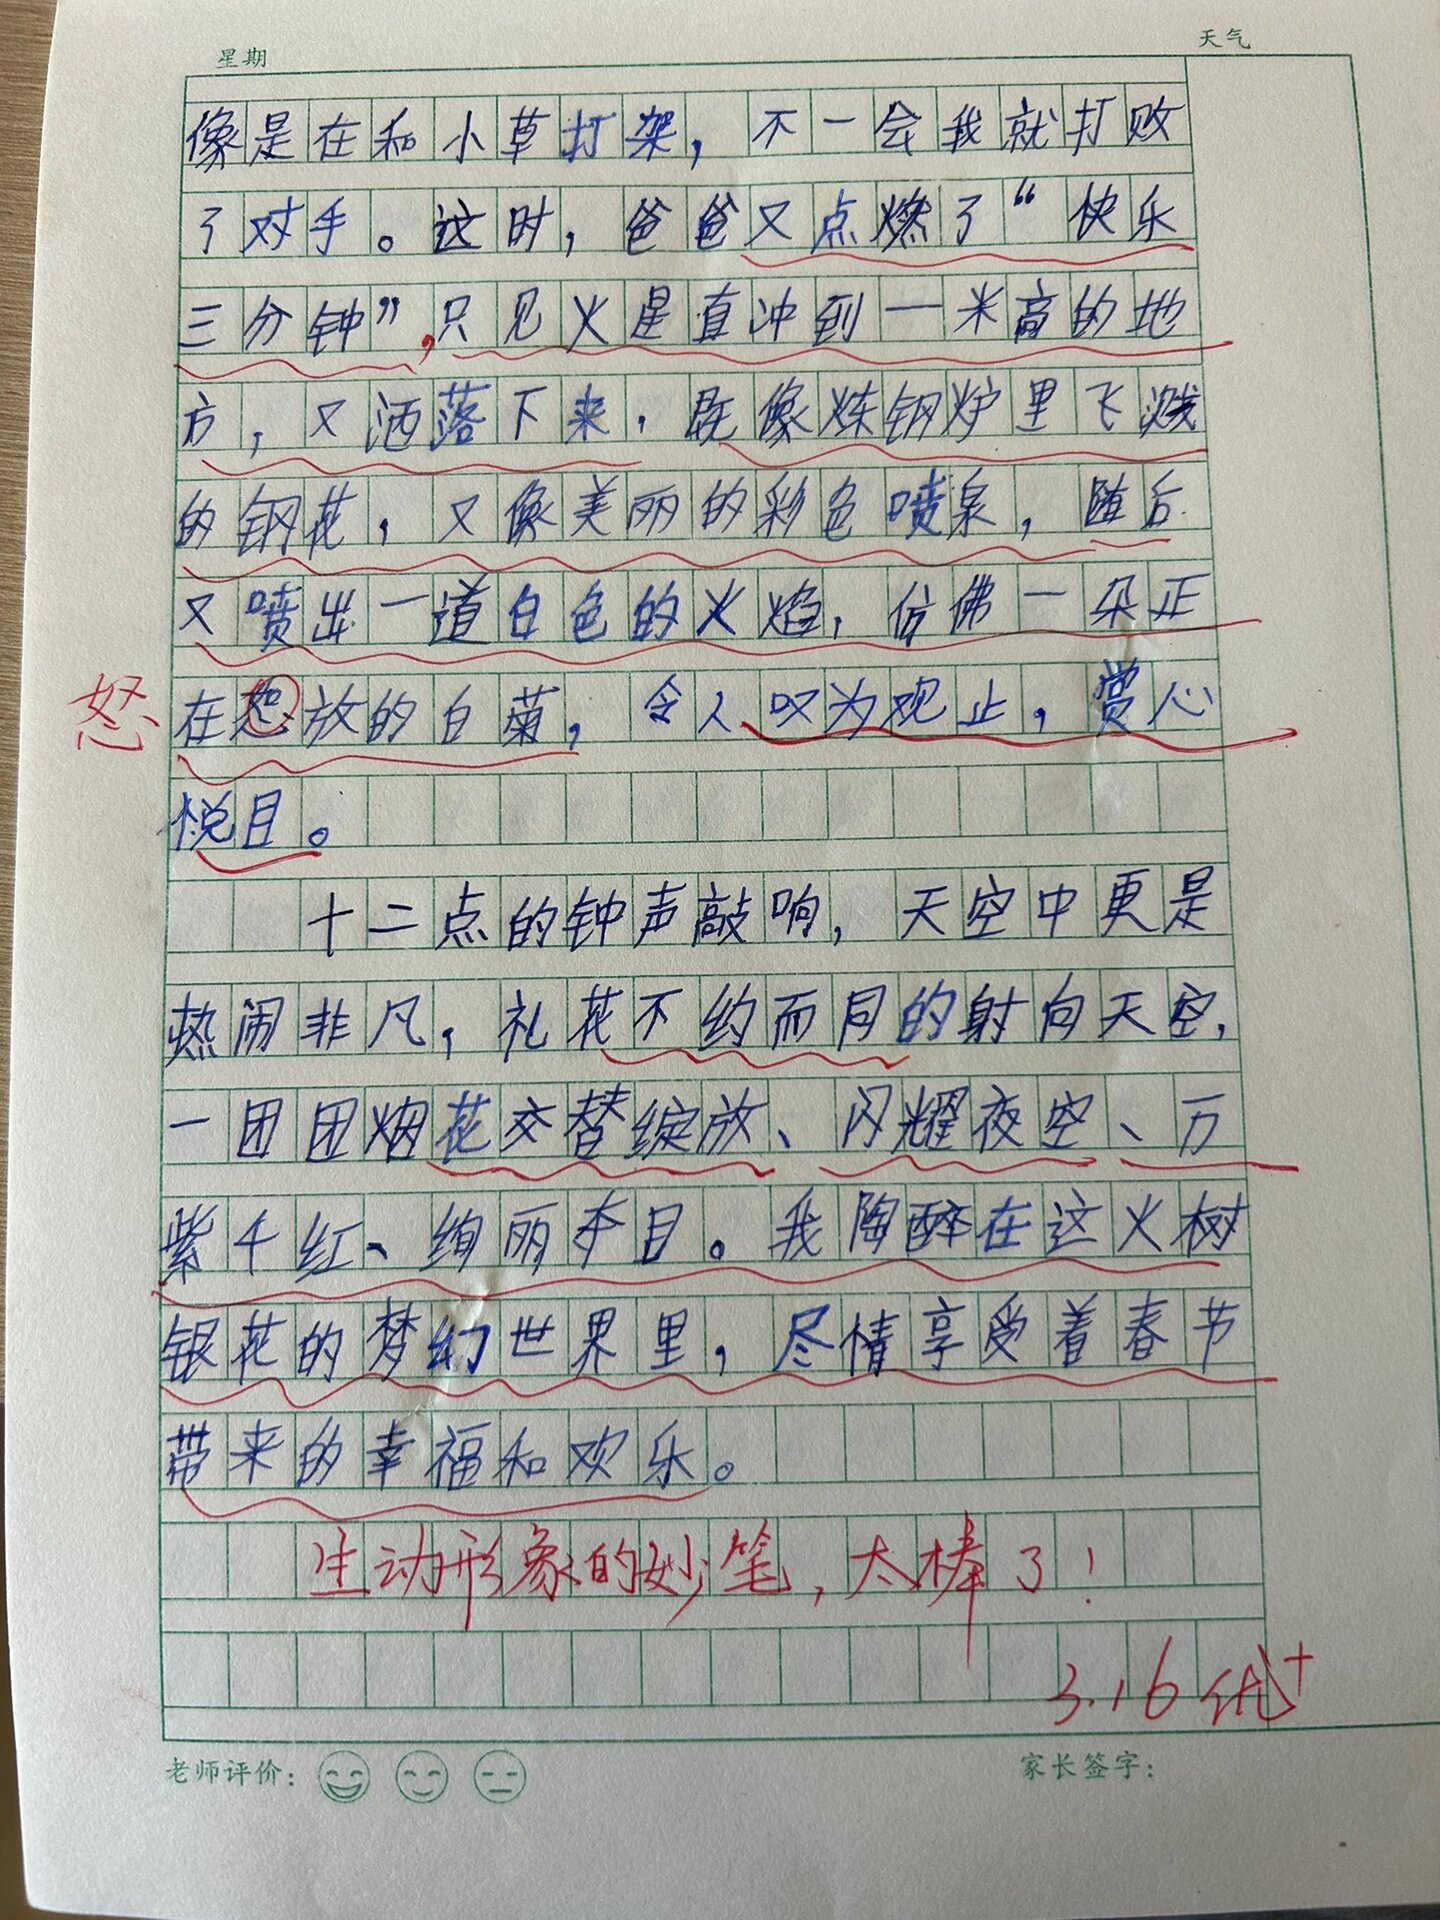 星期 天气
像是在和小草打架，不一会我就打败
了对手。这时，爸爸又点燃了“快乐
三分钟”，只见火星直冲到一米高的地
方，又洒落下来，既像炼钢炉里飞溅
的钢花，又像美丽的彩色喷泉，随后
又喷出一道白色的火焰，仿佛一朵正
怒
在放的白菊，令人叹为观止，赏心
悦目。
十二点的钟声敲响，天空中更是
热闹非凡，礼花不约而同的射向天空，
一团团烟花交替绽放、闪耀夜空、万
紫千红、绚丽夺目。我陶醉在这火树
银花的梦幻世界里，尽情享受着春节
带来的幸福和欢乐。
生动形象的妙笔，太棒了！
3.16 优+
老师评价： 家长签字：